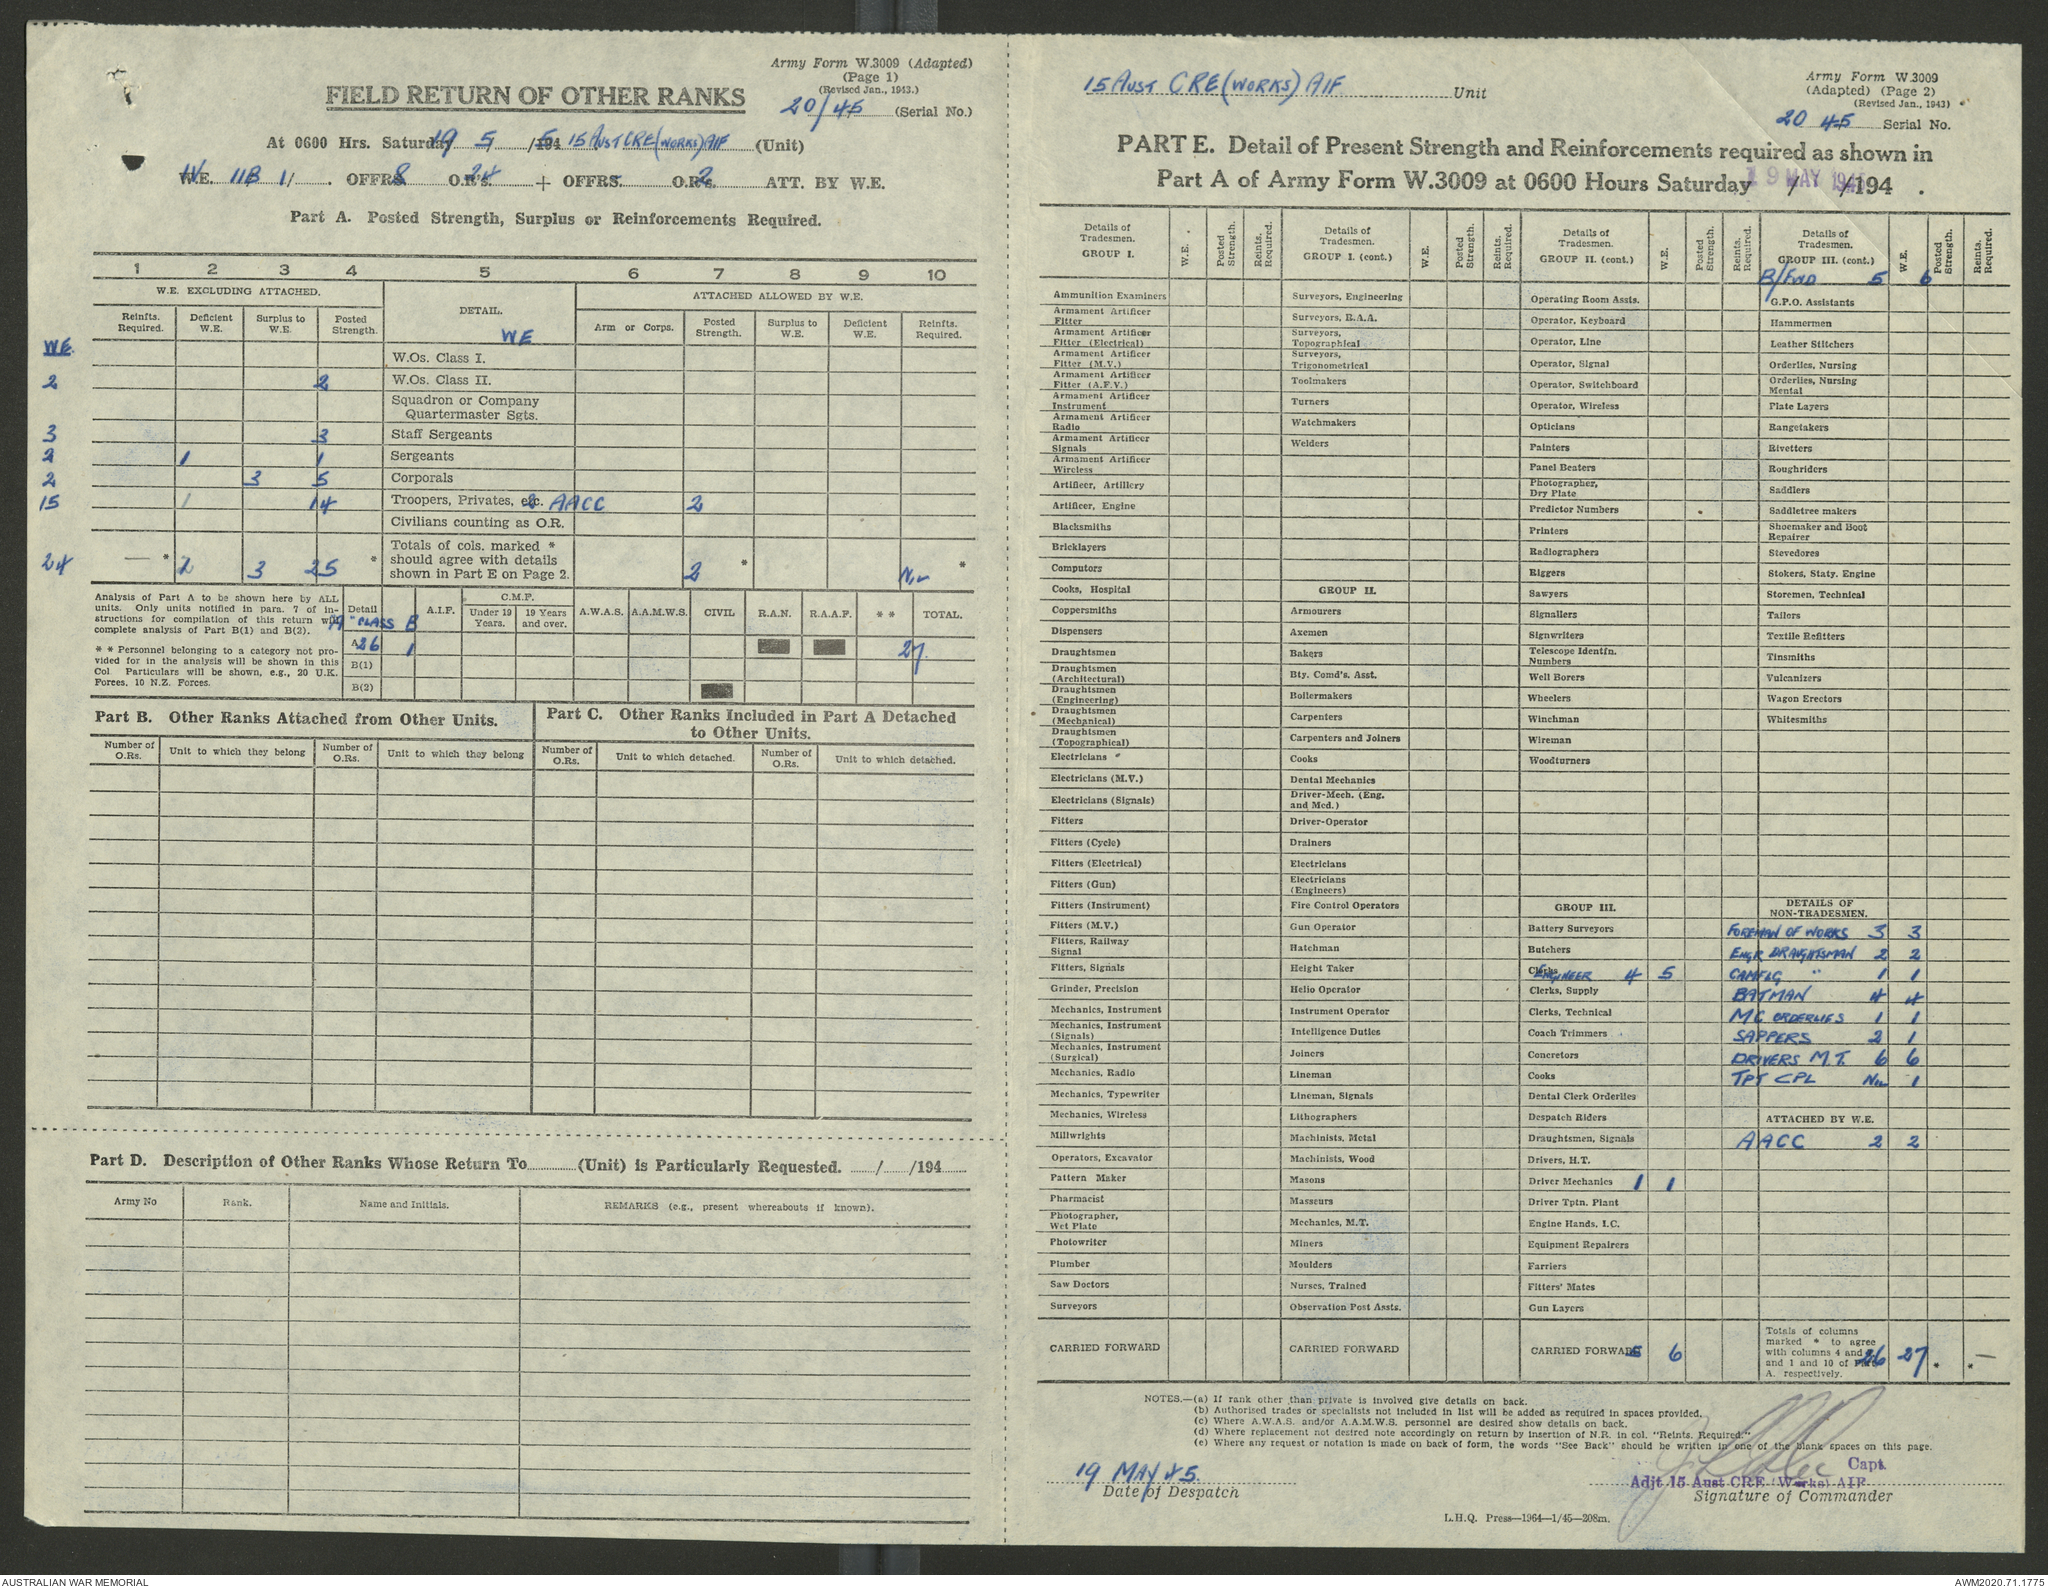 Army Form W.3009 (Adapted)
(Page 1)
(Revised Jan., 1943.)
FIELD RETURN OF OTHER RANKS
20/45 (Serial No.)
At 0600 Hrs. Saturday 19 5 /194 5 15 AUST CRE (WORKS) AIF (Unit)
W.E. 11B 1/ OFFRS 8 O.R's. 24 + OFFRS - O.R's. 2 ATT. BY W.E.
Part A. Posted Strength, Surplus or Reinforcements Required.
1 2 3 4 5 6 7 8 9 10
W.E. EXCLUDING ATTACHED. DETAIL. ATTACHED ALLOWED BY W.E.
Reinfts. Required. Deficient W.E. Surplus to W.E. Posted Strength. WE Arm or Corps. Posted Strength. Surplus to W.E. Deficient W.E. Reinfts. Required.
WE. W.Os. Class I.
2 2 W.Os. Class II.
Squadron or Company Quartermaster Sgts.
3 3 Staff Sergeants
2 1 1 Sergeants
2 3 5 Corporals
15 1 14 Troopers, Privates, etc. 2 AACC 2
Civilians counting as O.R.
24 — * 2 3 25 * Totals of cols. marked * should agree with details shown in Part E on Page 2. 2 * Nil *
Analysis of Part A to be shown here by ALL units. Only units notified in para. 7 of instructions for compilation of this return will complete analysis of Part B(1) and B(2).
* * Personnel belonging to a category not provided for in the analysis will be shown in this Col. Particulars will be shown, e.g., 20 U.K. Forces, 10 N.Z. Forces.
Detail A.I.F. C.M.F. Under 19 Years. 19 Years and over. A.W.A.S. A.A.M.W.S. CIVIL R.A.N. R.A.A.F. * * TOTAL.
"A" CLASS B
A 26 1 27
B(1)
B(2)
Part B. Other Ranks Attached from Other Units.
Part C. Other Ranks Included in Part A Detached to Other Units.
Number of O.Rs. Unit to which they belong Number of O.Rs. Unit to which they belong Number of O.Rs. Unit to which detached. Number of O.Rs. Unit to which detached.
Part D. Description of Other Ranks Whose Return To (Unit) is Particularly Requested. / /194
Army No Rank. Name and Initials. REMARKS (e.g., present whereabouts if known).
15 AUST CRE (WORKS) AIF Unit
Army Form W.3009
(Adapted) (Page 2)
(Revised Jan., 1943)
20 45 Serial No.
PART E. Detail of Present Strength and Reinforcements required as shown in
Part A of Army Form W.3009 at 0600 Hours Saturday 19 MAY 1945 / /194 .
Details of Tradesmen. GROUP I. W.E. Posted Strength. Reints. Required.
Ammunition Examiners
Armament Artificer Fitter
Armament Artificer Fitter (Electrical)
Armament Artificer Fitter (M.V.)
Armament Artificer Fitter (A.F.V.)
Armament Artificer Instrument
Armament Artificer Radio
Armament Artificer Signals
Armament Artificer Wireless
Artificer, Artillery
Artificer, Engine
Blacksmiths
Bricklayers
Computors
Cooks, Hospital
Coppersmiths
Dispensers
Draughtsmen
Draughtsmen (Architectural)
Draughtsmen (Engineering)
Draughtsmen (Mechanical)
Draughtsmen (Topographical)
Electricians
Electricians (M.V.)
Electricians (Signals)
Fitters
Fitters (Cycle)
Fitters (Electrical)
Fitters (Gun)
Fitters (Instrument)
Fitters (M.V.)
Fitters, Railway Signal
Fitters, Signals
Grinder, Precision
Mechanics, Instrument
Mechanics, Instrument (Signals)
Mechanics, Instrument (Surgical)
Mechanics, Radio
Mechanics, Typewriter
Mechanics, Wireless
Millwrights
Operators, Excavator
Pattern Maker
Pharmacist
Photographer, Wet Plate
Photowriter
Plumber
Saw Doctors
Surveyors
CARRIED FORWARD
Details of Tradesmen. GROUP I. (cont.) W.E. Posted Strength. Reints. Required.
Surveyors, Engineering
Surveyors, R.A.A.
Surveyors, Topographical
Surveyors, Trigonometrical
Toolmakers
Turners
Watchmakers
Welders
GROUP II.
Armourers
Axemen
Bakers
Bty. Comd's. Asst.
Boilermakers
Carpenters
Carpenters and Joiners
Cooks
Dental Mechanics
Driver-Mech. (Eng. and Mcd.)
Driver-Operator
Drainers
Electricians
Electricians (Engineers)
Fire Control Operators
Gun Operator
Hatchman
Height Taker
Helio Operator
Instrument Operator
Intelligence Duties
Joiners
Lineman
Lineman, Signals
Lithographers
Machinists, Metal
Machinists, Wood
Masons
Masseurs
Mechanics, M.T.
Miners
Moulders
Nurses, Trained
Observation Post Assts.
CARRIED FORWARD
Details of Tradesmen. GROUP II. (cont.) W.E. Posted Strength. Reints. Required.
Operating Room Assts.
Operator, Keyboard
Operator, Line
Operator, Signal
Operator, Switchboard
Operator, Wireless
Opticians
Painters
Panel Beaters
Photographer, Dry Plate
Predictor Numbers
Printers
Radiographers
Riggers
Sawyers
Signallers
Signwriters
Telescope Identfn. Numbers
Well Borers
Wheelers
Winchman
Wireman
Woodturners
GROUP III.
Battery Surveyors
Butchers
Clerks ENGINEER 4 5
Clerks, Supply
Clerks, Technical
Coach Trimmers
Concretors
Cooks
Dental Clerk Orderlies
Despatch Riders
Draughtsmen, Signals
Drivers, H.T.
Driver Mechanics 1 1
Driver Tptn. Plant
Engine Hands, I.C.
Equipment Repairers
Farriers
Fitters' Mates
Gun Layers
CARRIED FORWARD 5 6
Details of Tradesmen. GROUP III. (cont.) W.E. Posted Strength. Reints. Required.
B/FWD 5 6
G.P.O. Assistants
Hammermen
Leather Stitchers
Orderlies, Nursing
Orderlies, Nursing Mental
Plate Layers
Rangetakers
Rivetters
Roughriders
Saddlers
Saddletree makers
Shoemaker and Boot Repairer
Stevedores
Stokers, Staty. Engine
Storemen, Technical
Tailors
Textile Refitters
Tinsmiths
Vulcanizers
Wagon Erectors
Whitesmiths
DETAILS OF NON-TRADESMEN.
FOREMAN OF WORKS 3 3
ENGR DRAUGHTSMAN 2 2
CAMFLG " 1 1
BATMAN 4 4
MC ORDERLIES 1 1
SAPPERS 2 1
DRIVERS M.T. 6 6
TPT CPL NIL 1
ATTACHED BY W.E.
AACC 2 2
Totals of columns marked * to agree with columns 4 and 7 and 1 and 10 of Part A. respectively. 26 27 * * —
NOTES.—(a) If rank other than private is involved give details on back.
(b) Authorised trades or specialists not included in list will be added as required in spaces provided.
(c) Where A.W.A.S. and/or A.A.M.W.S. personnel are desired show details on back.
(d) Where replacement not desired note accordingly on return by insertion of N.R. in col. "Reints. Required."
(e) Where any request or notation is made on back of form, the words "See Back" should be written in one of the blank spaces on this page.
19 MAY 45.
Date of Despatch
Capt.
Adjt 15 Aust CRE (Works) AIF
Signature of Commander
L.H.Q. Press—1964—1/45—208m.
AUSTRALIAN WAR MEMORIAL
AWM2020.71.1775